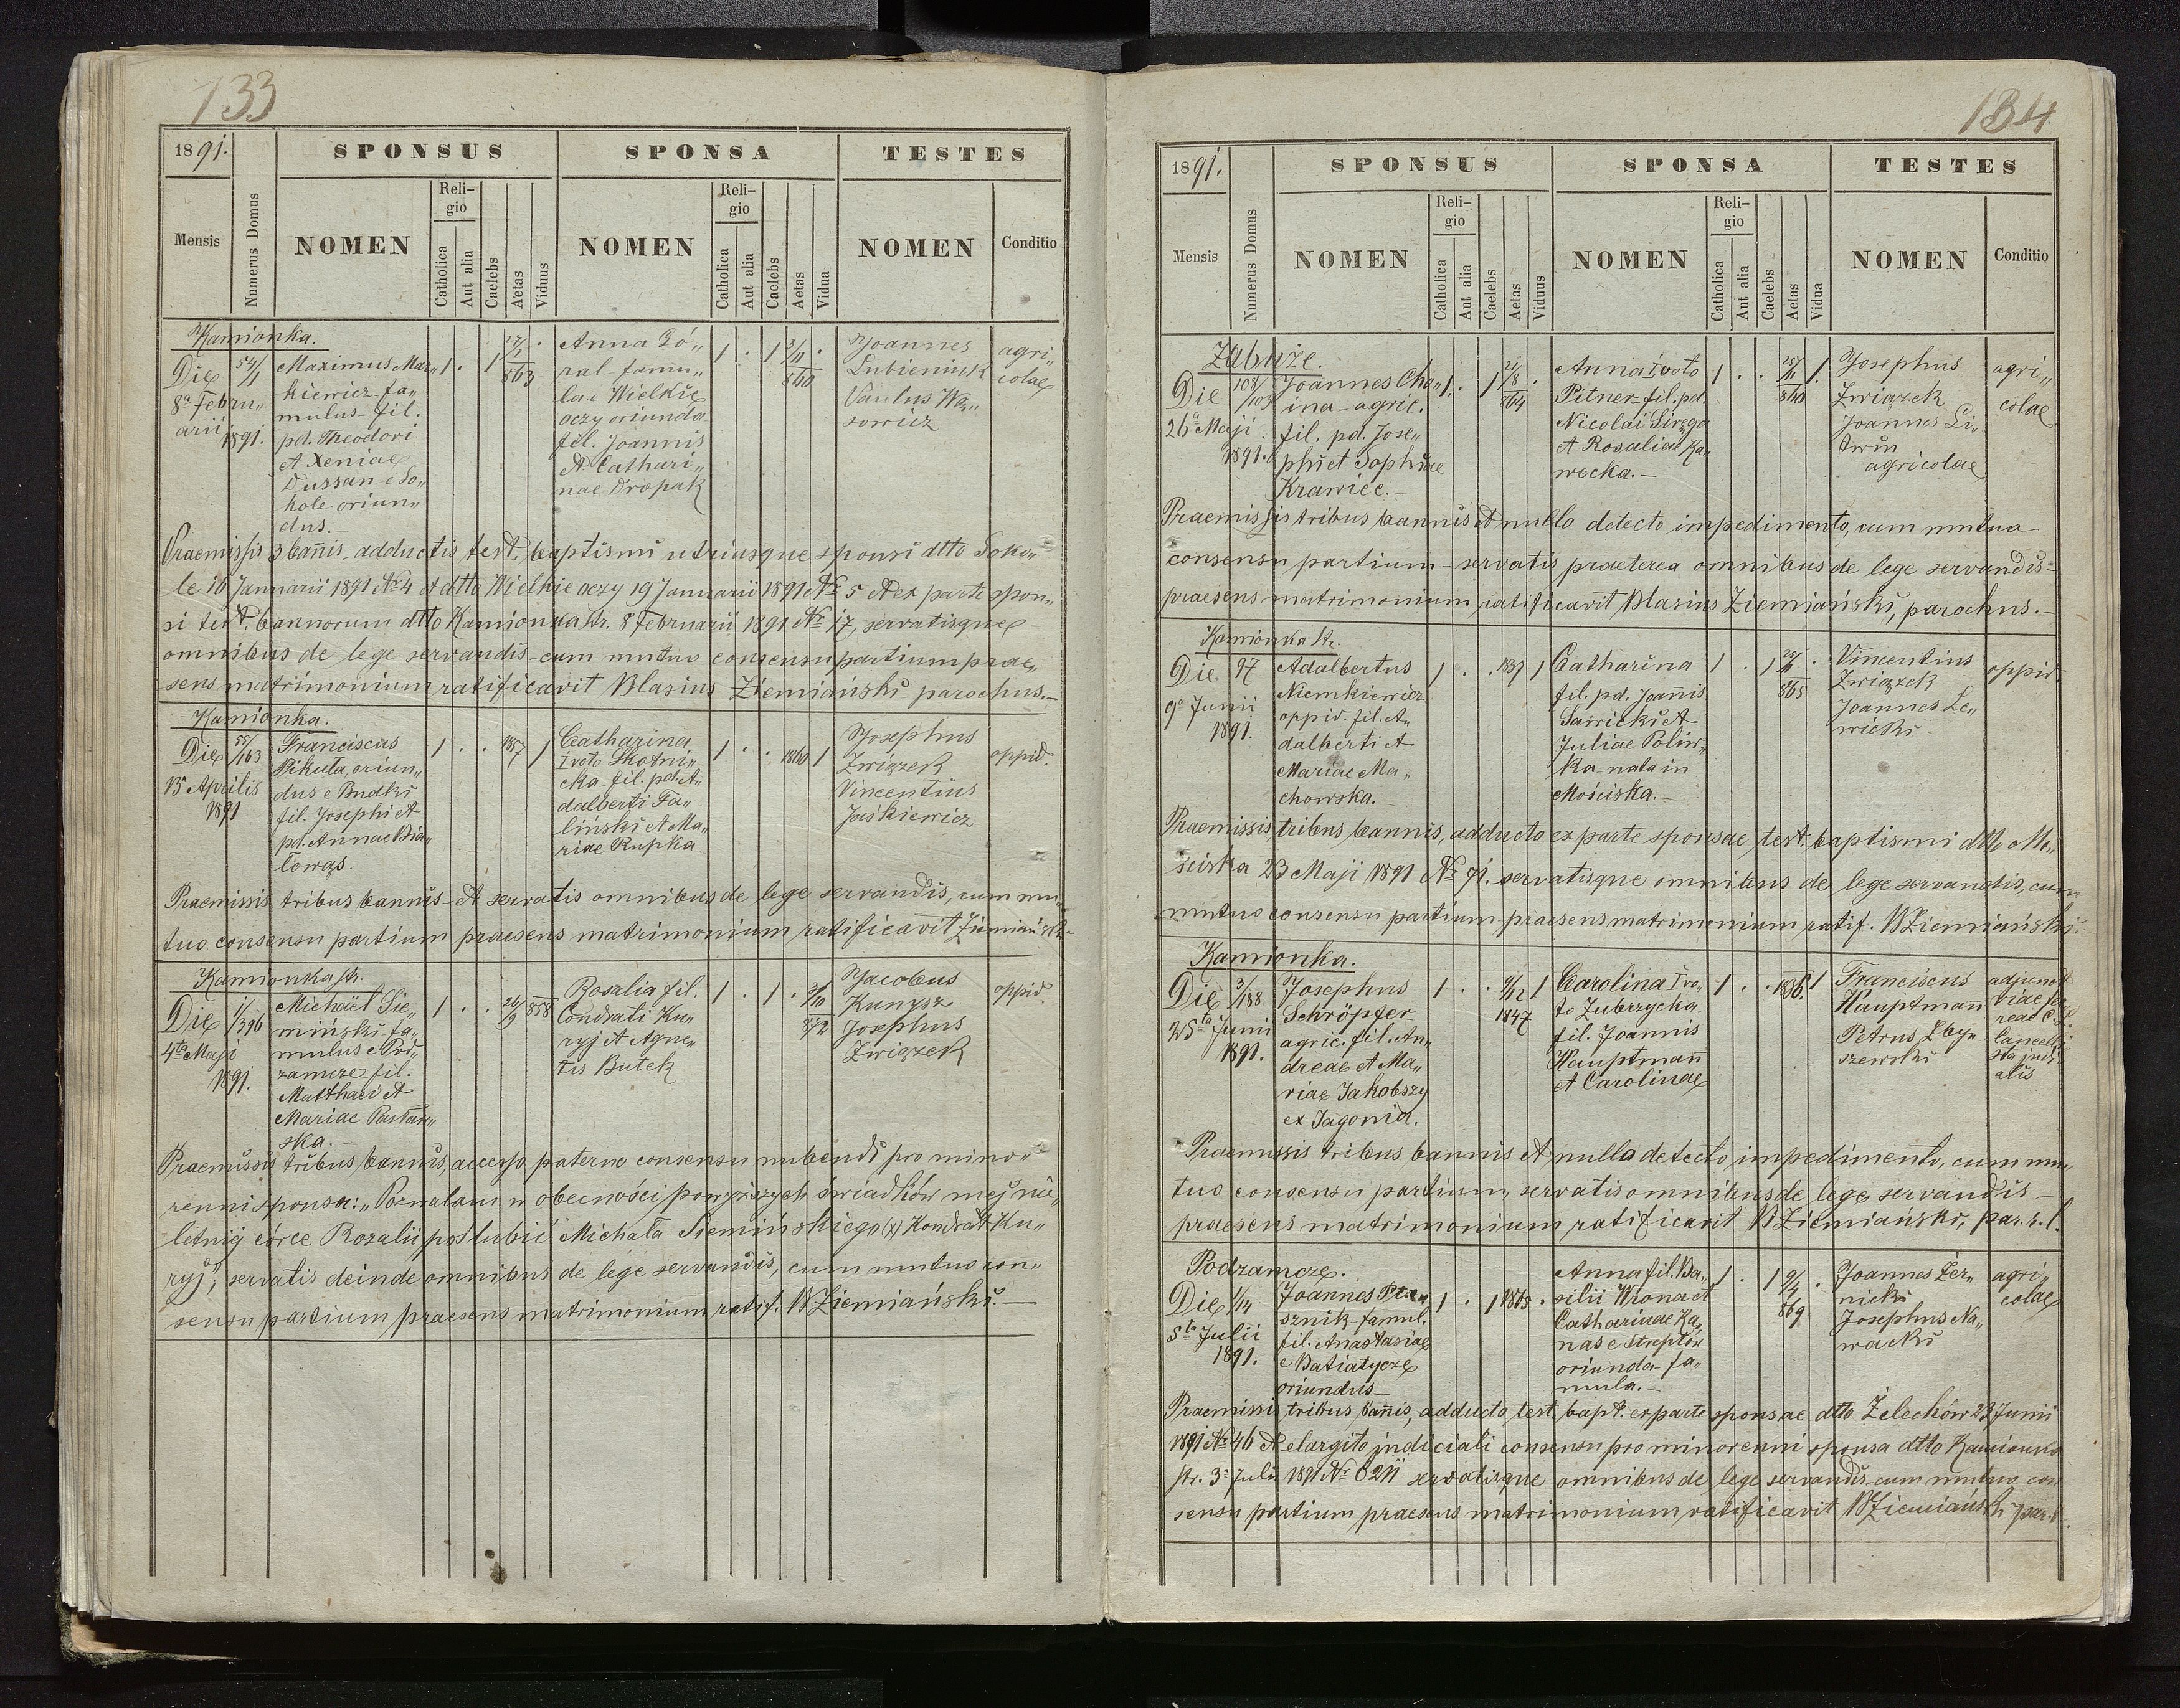 133
1891.
SPONSUS
SPONSA
TESTES
Mensis
Numerus Domus
NOMEN
Religio
Catholica
Aut alia
Caelebs
Aetas
Viduus
NOMEN
Religio
Catholica
Aut alia
Caelebs
Aetas
Vidua
NOMEN
Conditio
Kamionka.
Die
8ª Febru„
arii
1891.
54/1
Maximus Maz„
kiewicz fa„
mulus fil.
pd. Theodori
et Xeniae
Dussan e So„
kole oriun„
dus.
1 . 1 27/2 863 .
Anna Gó„
ral famu„
lae Wielkie
oczy oriunda
fil. Joannis
et Cathari„
nae Dropak
1 . 1 3/11 860 .
Joannes
Lubieniuk
Paulus Wą„
sowicz
agri„
colae
Praemissis 3 bannis adductis test. baptismi utriusque sponsi dtto Soko„
le 16 Januarii 1891 № 4 et dtto Wielkie oczy 19 Januarii 1891 № 5 et ex parte spon„
si test. bannorum dtto Kamionka str. 8 Februarii 1891 № 17, servatisque
omnibus de lege servandis cum mutuo consensu partium prae„
sens matrimonium ratificavit Blasius Ziemiański parochus.
Kamionka.
Die
15 Aprilis
1891
55/163
Franciscus
Pikuła, oriun„
dus e Budki
fil. Josephi et
pd. Annae Bia„
łowąs.
1 . . 1857 1
Catharina
Ivoto Skotni„
cka fil. pd. A„
dalberti Fa„
liński et Ma„
riae Rupka
1 . . 1860 1
Josephus
Związek
Vincentius
Jaśkiewicz
oppid.
Praemissis tribus bannis et servatis omnibus de lege servandis, cum mu„
tuo consensu partium praesens matrimonium ratificavit Ziemiański
Kamionka str.
Die
4ta Maji
1891.
1/396
Michaël Sie„
miński fa„
mulus e Pod„
zamcze fil.
Matthaei et
Mariae Pastań„
ska.
1 . . 26/9 858
Rosalia fil.
Condrati Ku„
ryj et Agne„
tis Butek
1 . 1 . 3/10 872
Jacobus
Kunysz
Josephus
Związek
oppid.
Praemissis tribus bannis, accesso paterno consensu nubendi pro mino„
renni sponsa: „Pozwalam w obecności powyższych świadków mej nie„
letniej córce Rozalii poślubić Michała Siemińskiego (x) Kondrat Ku„
ryj", servatis deinde omnibus de lege servandis, cum mutuo con„
sensu partium praesens matrimonium ratif. B Ziemiański.
134
1891.
SPONSUS
SPONSA
TESTES
Mensis
Numerus Domus
NOMEN
Religio
Catholica
Aut alia
Caelebs
Aetas
Viduus
NOMEN
Religio
Catholica
Aut alia
Caelebs
Aetas
Vidua
NOMEN
Conditio
Zabuże.
Die
26ª Maji
1891.
108/103
Joannes Cha„
ina agric.
fil. pd. Jose„
phi et Sophiae
Krawiec.
1 . 1 21/8 864 .
Anna Ivoto
Pitner fil. pd.
Nicolai Siręga
et Rosaliae Ka„
wecka.
1 . . 25/11 860 1.
Josephus
Związek
Joannes Li„
twin
agricolae
agri„
colae
Praemissis tribus bannis et nullo detecto impedimento, cum mutuo
consensu partium servatis praeterea omnibus de lege servandis
praesens matrimonium ratificavit Blasius Ziemiański, parochus.
Kamionka str.
Die
9ª Junii
1891.
97
Adalbertus
Niemkiewicz
oppid. fil. A„
dalberti et
Mariae Ma„
chowska.
1 . . 1837 1
Catharina
fil. pd. Joannis
Sawicki et
Juliae Poliw„
ka nata in
Mościska.
1 . 1 865 .
Vincentius
Związek
Joannes Le„
wicki
oppid.
Praemissis tribus bannis, adducto ex parte sponsae test. baptismi dtto Mo„
ściska 23 Maji 1891 № 91. servatisque omnibus de lege servandis, cum
mutuo consensu partium praesens matrimonium ratif. B Ziemiański.
Kamionka.
Die
25ta Junii
1891.
3/188
Josephus
Schröpfer
agric. fil. An„
dreae et Ma„
riae Jakobszy
ex Jagonia.
1 . . 9/12 1847 1
Carolina Ivo„
to Zubrzycka
fil. Joannis
Hauptmann
et Carolinae
1 . . 1836. 1
Franciscus
Hauptmann
Petrus Zby„
szewski
adjunct
viae fer
reae C. L.
Cancelli
sta judi
alis
Praemissis tribus bannis et nullo detecto impedimento, cum mu„
tuo consensu partium, servatis omnibus de lege servandis
praesens matrimonium ratificavit B Ziemiański, par. r. l.
Podzamcze.
Die
5ta Julii
1891.
1/14
Joannes Pta„
sznik famul.
fil. Anastasiae
e Batiatycze
oriundus
1 . 1 1865 .
Anna fil. Ba„
silii Wrona et
Catharinae Ka„
nas e Streptów
oriunda fa„
mula.
1 . 1 9/4 869 .
Joannes Żer„
nicki
Josephus Na„
wacki
agri„
colae
Praemissis tribus bannis, adducto test. bapt. ex parte sponsae dtto Żelechów 23 Junii
1891 № 46 et elargito judiciali consensu pro minorenni sponsa dtto Kamionka
str. 3ª Julii 1891 № 6211 servatisque omnibus de lege servandis cum mutuo con
sensu partium praesens matrimonium ratificavit B Ziemiański par. l.